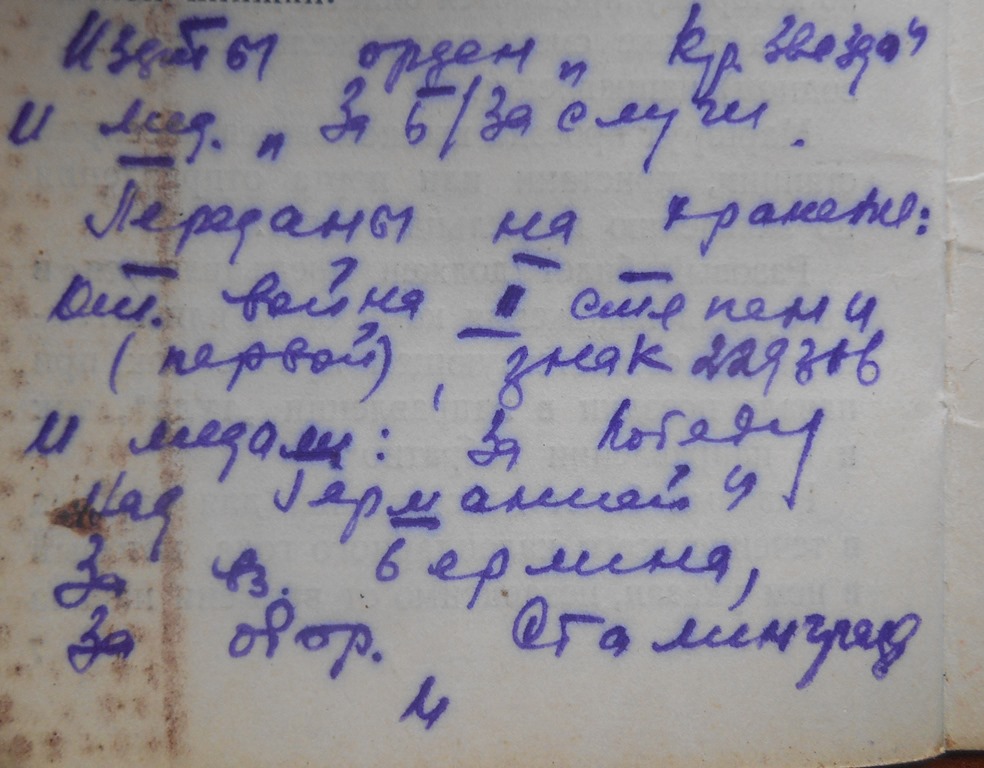 Изъяты орден „Кр. звезда"
и мед. „За б/заслуги.
Переданы на хранение:
От. война II степени
(первой), знак 229 зов
и медали: За Победу
над Германией и
За вз. Берлина,
За обор. Сталинград
и